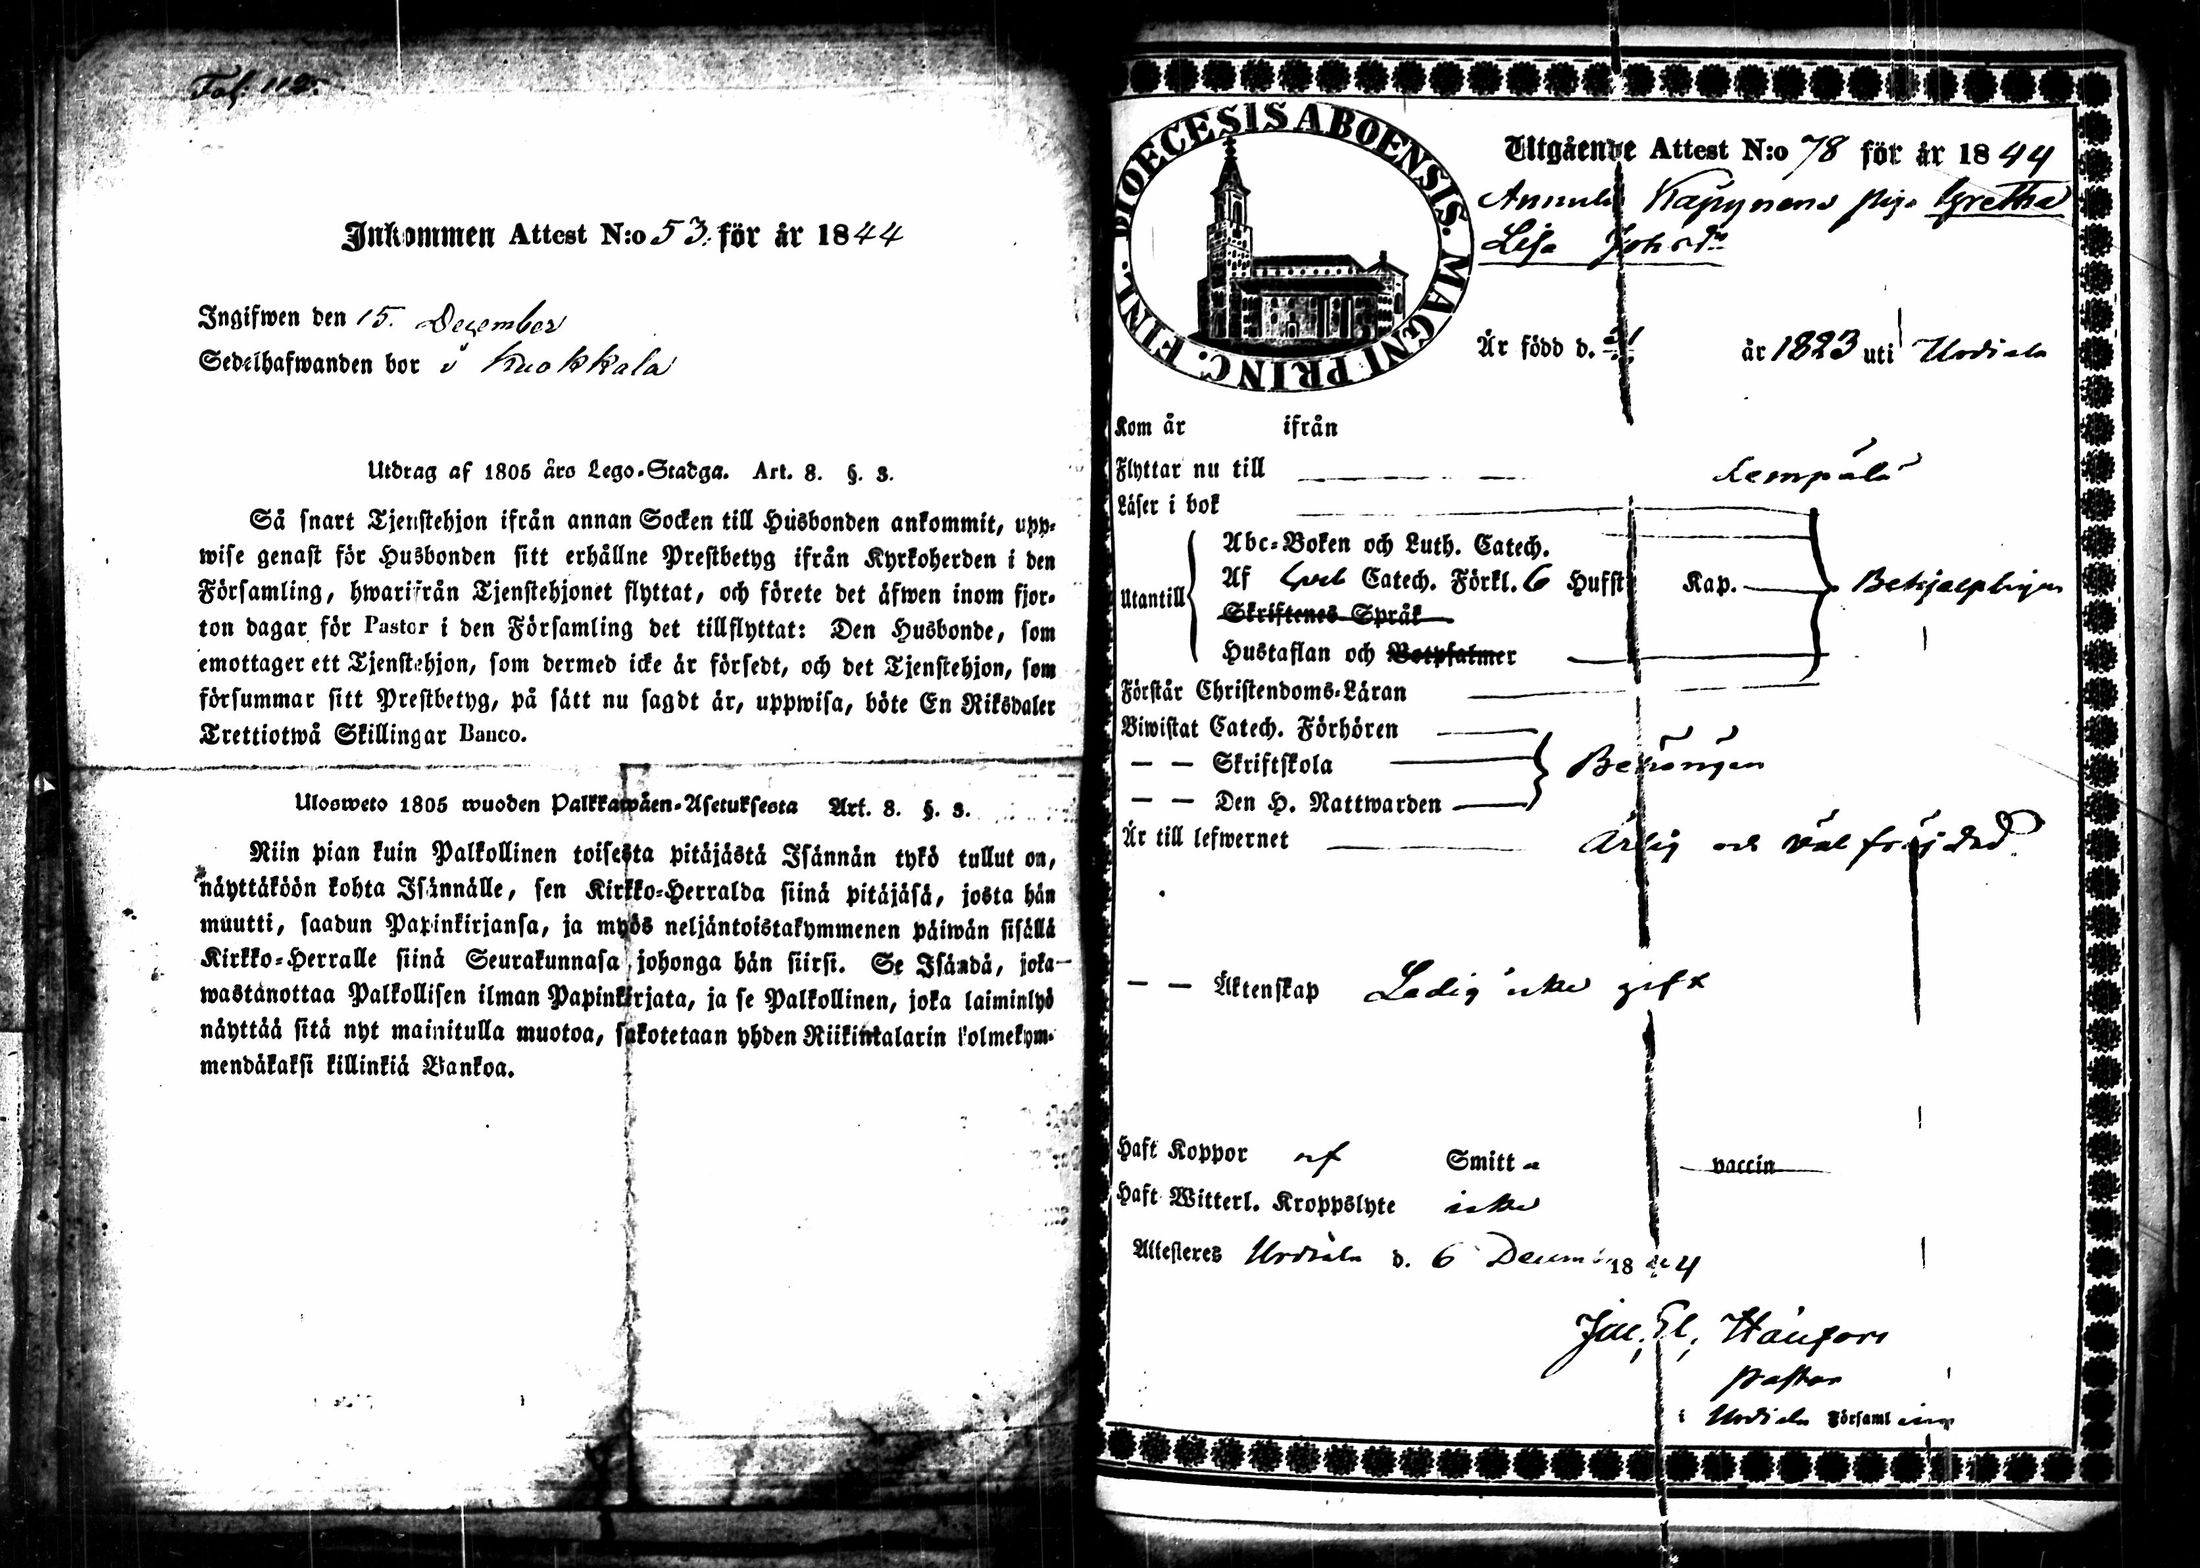 Fol. 112.
Inkommen Attest N:o 53. för år 1844
Ingifwen den 15. December
Sedelhafwanden bor i Kuokkala
Utdrag af 1805 års Lego-Stadga. Art. 8. §. 3.
Så snart Tjenstehjon ifrån annan Socken till Husbonden ankommit, upp-
wise genast för Husbonden sitt erhållne Prestbetyg ifrån Kyrkoherden i den
Församling, hwarifrån Tjenstehjonet flyttat, och förete det äfwen inom fjor-
ton dagar för Pastor i den Församling det tillflyttat: Den Husbonde, som
emottager ett Tjenstehjon, som dermed icke är försedt, och det Tjenstehjon, som
försummar sitt Prestbetyg, på sätt nu sagdt är, uppwisa, böte En Riksdaler
Trettiotwå Skillingar Banco.
Ulosweto 1805 wuoden Palkkawäen-Asetuksesta Art. 8. §. 3.
Niin pian kuin Palkollinen toisesta pitäjästä Isännän tykö tullut on,
näyttäköön kohta Isännälle, sen Kirkko-Herralda siinä pitäjäsä, josta hän
muutti, saadun Papinkirjansa, ja myös neljäntoistakymmenen päiwän sisällä
Kirkko-Herralle siinä Seurakunnasa johonga hän siirsi. Se Isändä, joka
wastanottaa Palkollisen ilman Papinkirjata, ja se Palkollinen, joka laiminlyö
näyttää sitä nyt mainitulla muotoa, sakotetaan yhden Riikintalarin kolmekym-
mendäkaksi killinkiä Bankoa.
DIOECESIS ABOENSIS. MAGNI PRINC. FINL.
Utgående Attest N:o 78 för år 1844
Annula Käpynens piga Gretha
Lisa Joh:sdr
Är född d. 21 år 1823 uti Urdiala
Kom år ifrån
Flyttar nu till Lempälä
Läser i bok
Utantill
Abc-Boken och Luth. Catech.
Af Catech. Förkl. 6 Hufst Kap. Behjelpligen
Skriftenes Språk
Hustaflan och Botpsalmer
Förstår Christendoms-Läran
Biwistat Catech. Förhören
— — Skriftskola Behörigen
— — Den H. Nattwarden
Är till lefwernet Ärlig och väl frejdad.
— — Äktenskap Ledig icke gift
Haft Koppor af Smitta vaccin
Haft Witterl. Kroppslyte icke
Attesteres Urdiala d. 6 Decemb 1844
Hänfors
Pastor
i Urdiala Församling